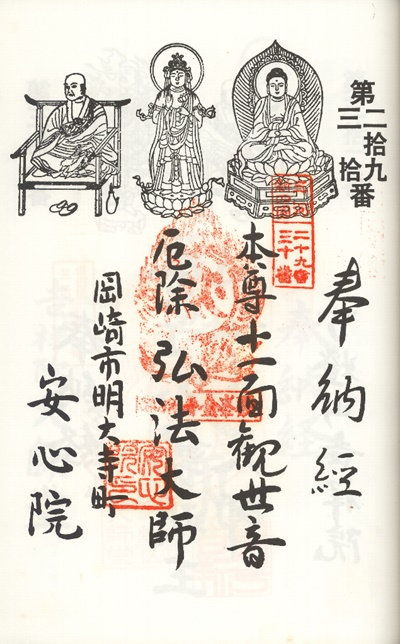 第二拾九
三拾番
二十九番
三十番
奉納經
本尊十一面觀世音
厄除弘法大師
岡崎市明大寺町
安心院